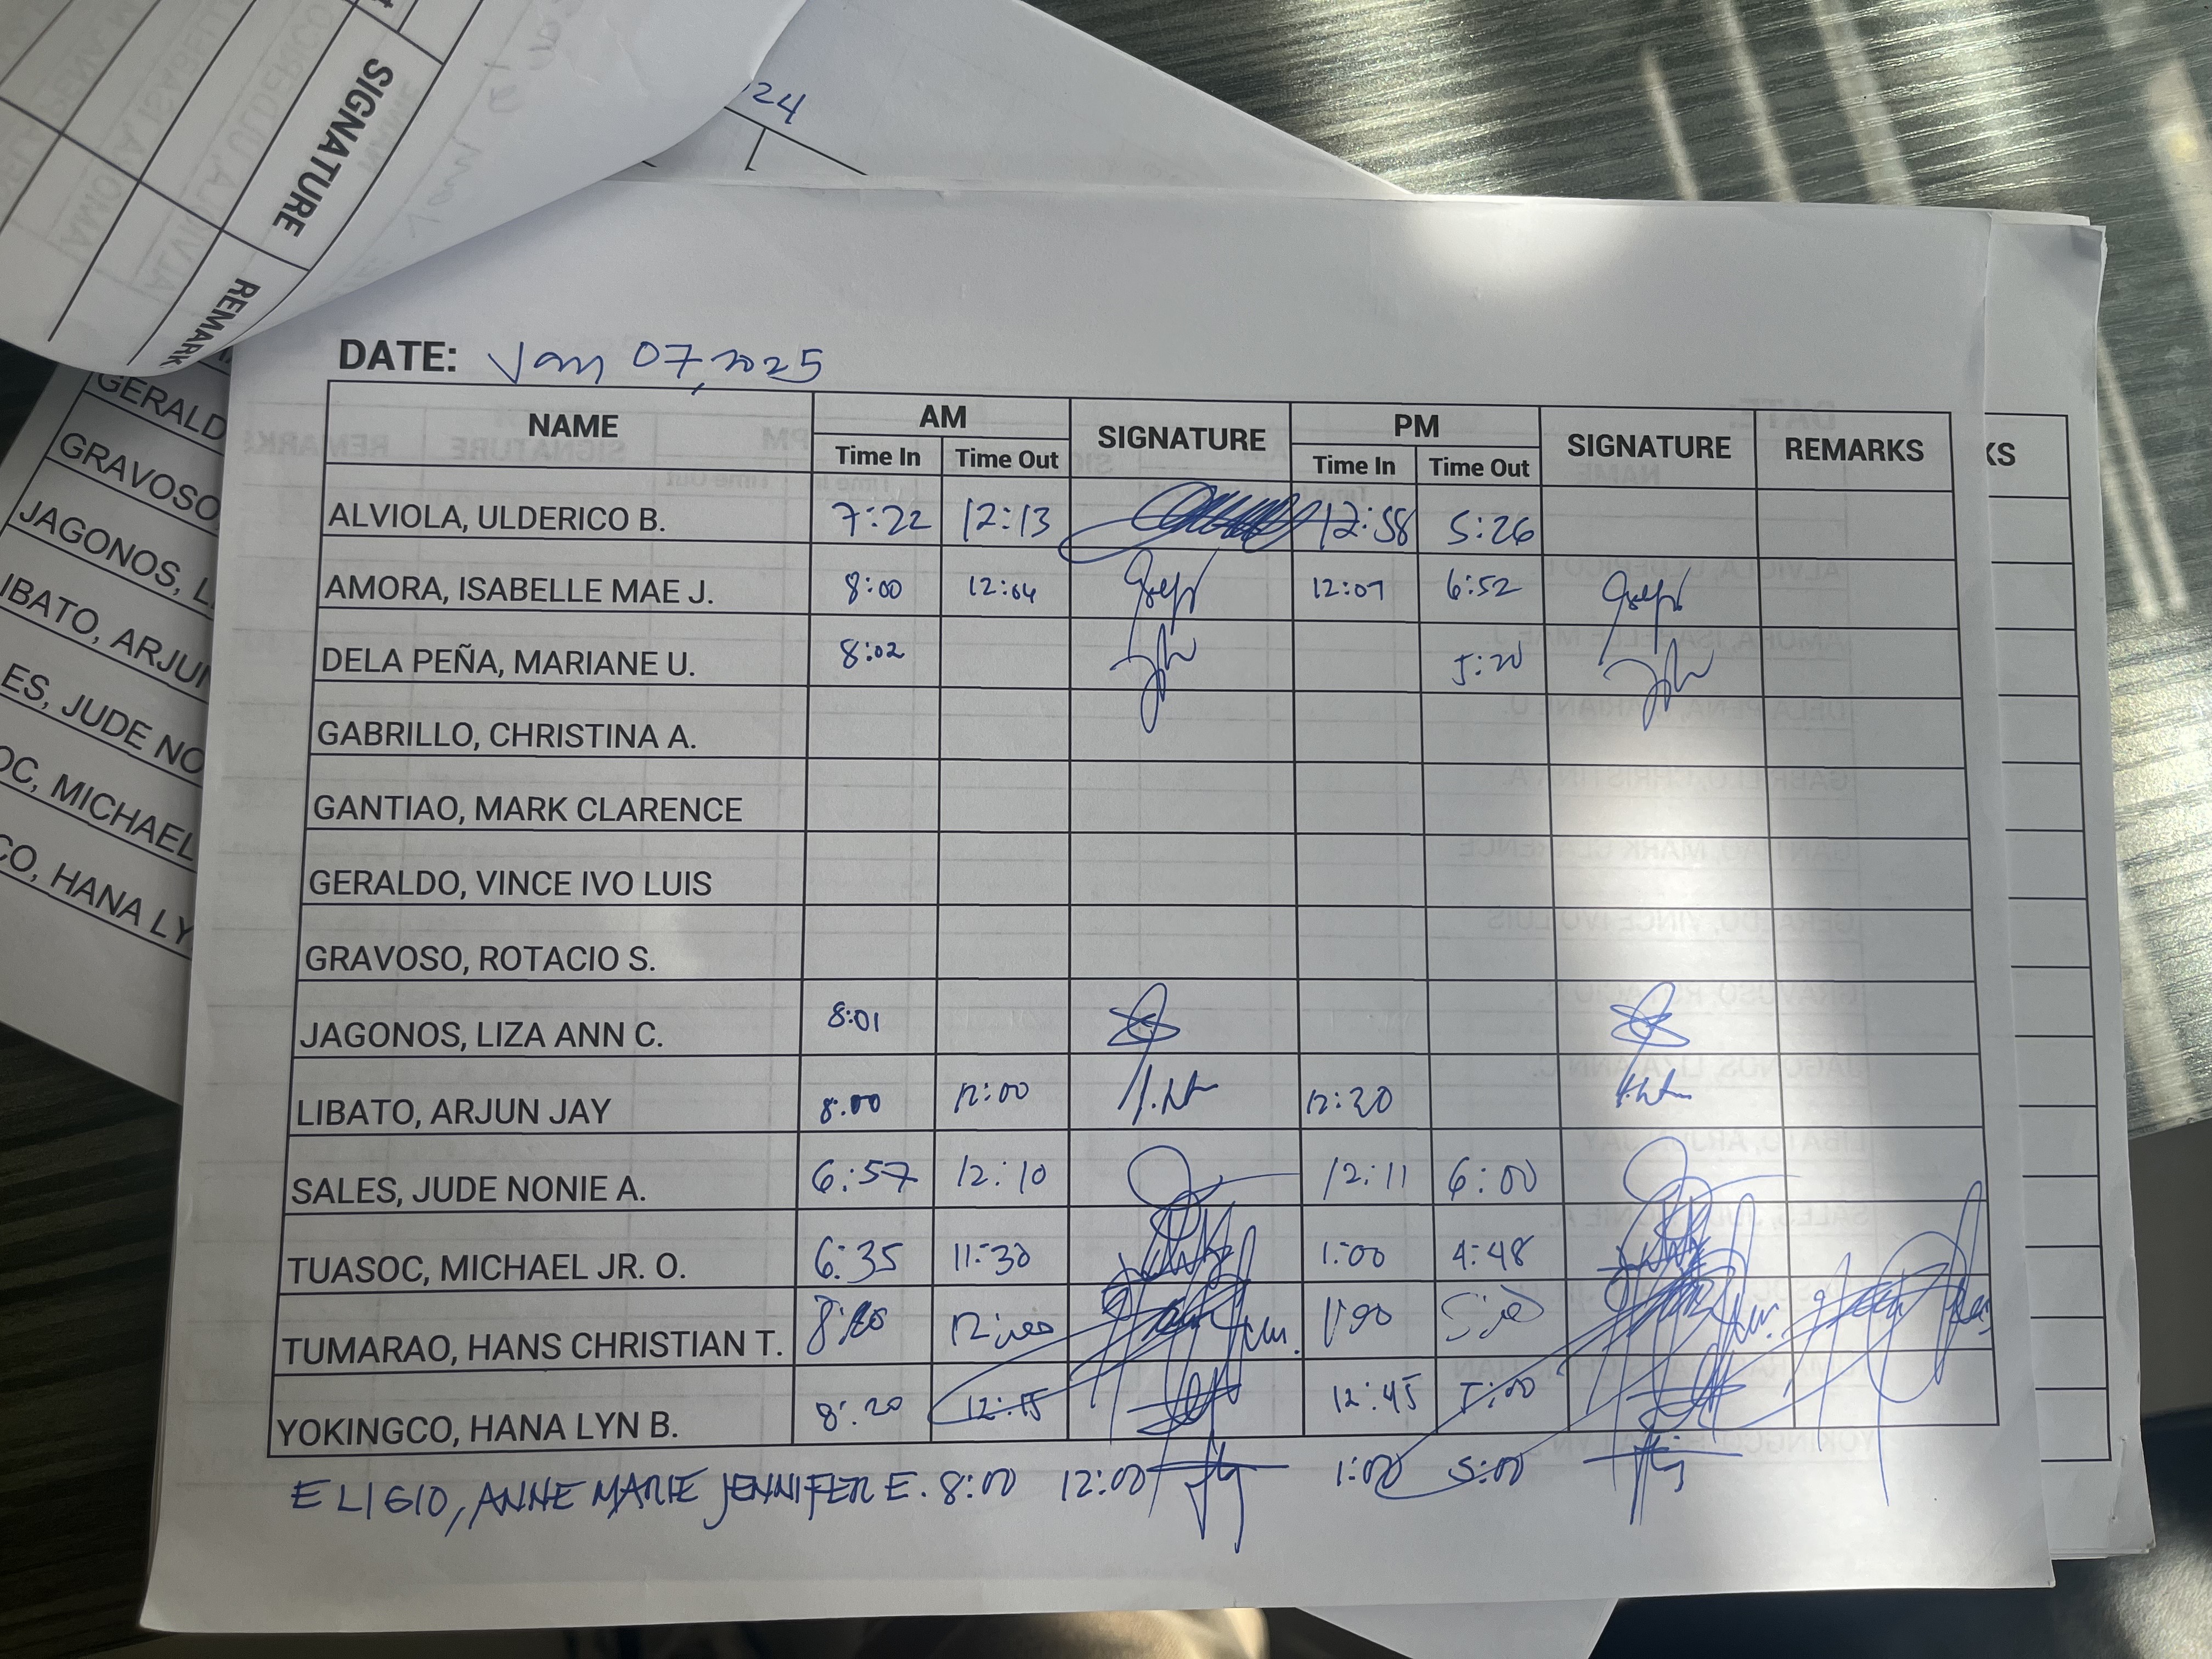 24
SIGNATURE
REMARK
GERALD
GRAVOSO
JAGONOS, L
IBATO, ARJUN
ES, JUDE NO
OC, MICHAEL
CO, HANA LY
KS
DATE: Jan 07, 2025
NAME AM SIGNATURE PM SIGNATURE REMARKS
Time In Time Out Time In Time Out
ALVIOLA, ULDERICO B. 7:22 12:13 12:58 5:26
AMORA, ISABELLE MAE J. 8:00 12:04 12:07 6:52
DELA PEÑA, MARIANE U. 8:02 5:20
GABRILLO, CHRISTINA A.
GANTIAO, MARK CLARENCE
GERALDO, VINCE IVO LUIS
GRAVOSO, ROTACIO S.
JAGONOS, LIZA ANN C. 8:01
LIBATO, ARJUN JAY 8:00 12:00 12:20
SALES, JUDE NONIE A. 6:57 12:10 12:11 6:00
TUASOC, MICHAEL JR. O. 6:35 11:30 1:00 4:48
TUMARAO, HANS CHRISTIAN T. 1:00
YOKINGCO, HANA LYN B. 8:20 12:15 12:45 5:00
ELIGIO, ANNE MARIE JENNIFER E. 8:00 12:00 1:00 5:00